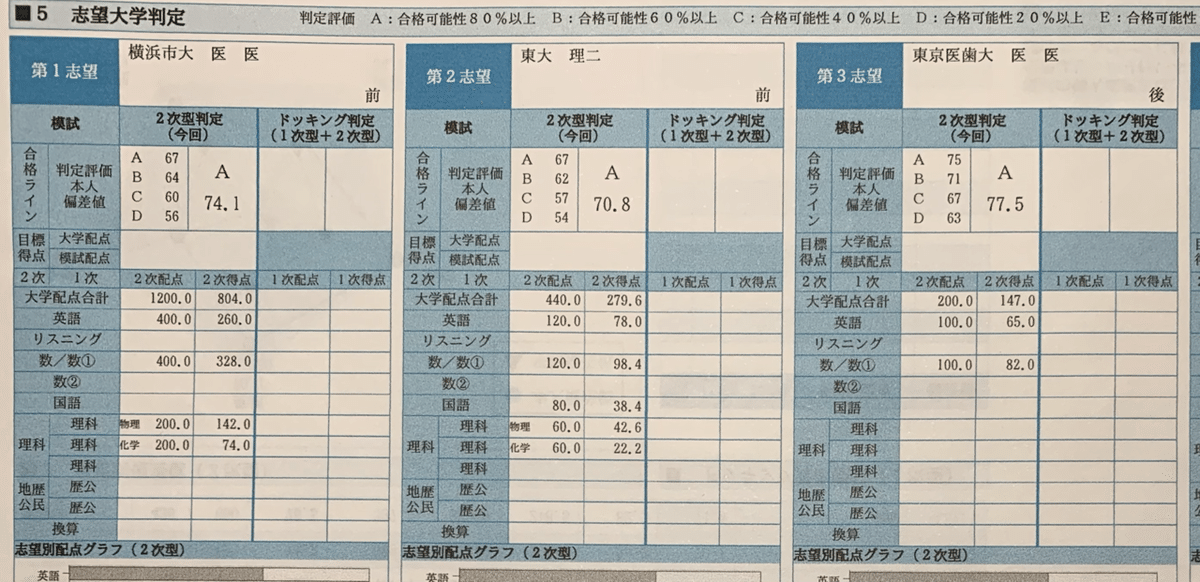 ■5 志望大学判定 判定評価 A：合格可能性80％以上 B：合格可能性60％以上 C：合格可能性40％以上 D：合格可能性20％以上 E：合格可能性
第1志望 横浜市大 医 医 前
模試 2次型判定（今回） ドッキング判定（1次型＋2次型）
合格ライン 判定評価 本人偏差値
A 67
B 64
C 60
D 56
A
74.1
目標得点 大学配点
模試配点
2次 1次 2次配点 2次得点 1次配点 1次得点
大学配点合計 1200.0 804.0
英語 400.0 260.0
リスニング
数／数① 400.0 328.0
数②
国語
理科 理科 物理 200.0 142.0
理科 化学 200.0 74.0
理科
地歴公民 歴公
歴公
換算
志望別配点グラフ（2次型）
英語
第2志望 東大 理二 前
模試 2次型判定（今回） ドッキング判定（1次型＋2次型）
合格ライン 判定評価 本人偏差値
A 67
B 62
C 57
D 54
A
70.8
目標得点 大学配点
模試配点
2次 1次 2次配点 2次得点 1次配点 1次得点
大学配点合計 440.0 279.6
英語 120.0 78.0
リスニング
数／数① 120.0 98.4
数②
国語 80.0 38.4
理科 理科 物理 60.0 42.6
理科 化学 60.0 22.2
理科
地歴公民 歴公
歴公
換算
志望別配点グラフ（2次型）
英語
第3志望 東京医歯大 医 医 後
模試 2次型判定（今回） ドッキング判定（1次型＋2次型）
合格ライン 判定評価 本人偏差値
A 75
B 71
C 67
D 63
A
77.5
目標得点 大学配点
模試配点
2次 1次 2次配点 2次得点 1次配点 1次得点
大学配点合計 200.0 147.0
英語 100.0 65.0
リスニング
数／数① 100.0 82.0
数②
国語
理科 理科
理科
理科
地歴公民 歴公
歴公
換算
志望別配点グラフ（2次型）
英語